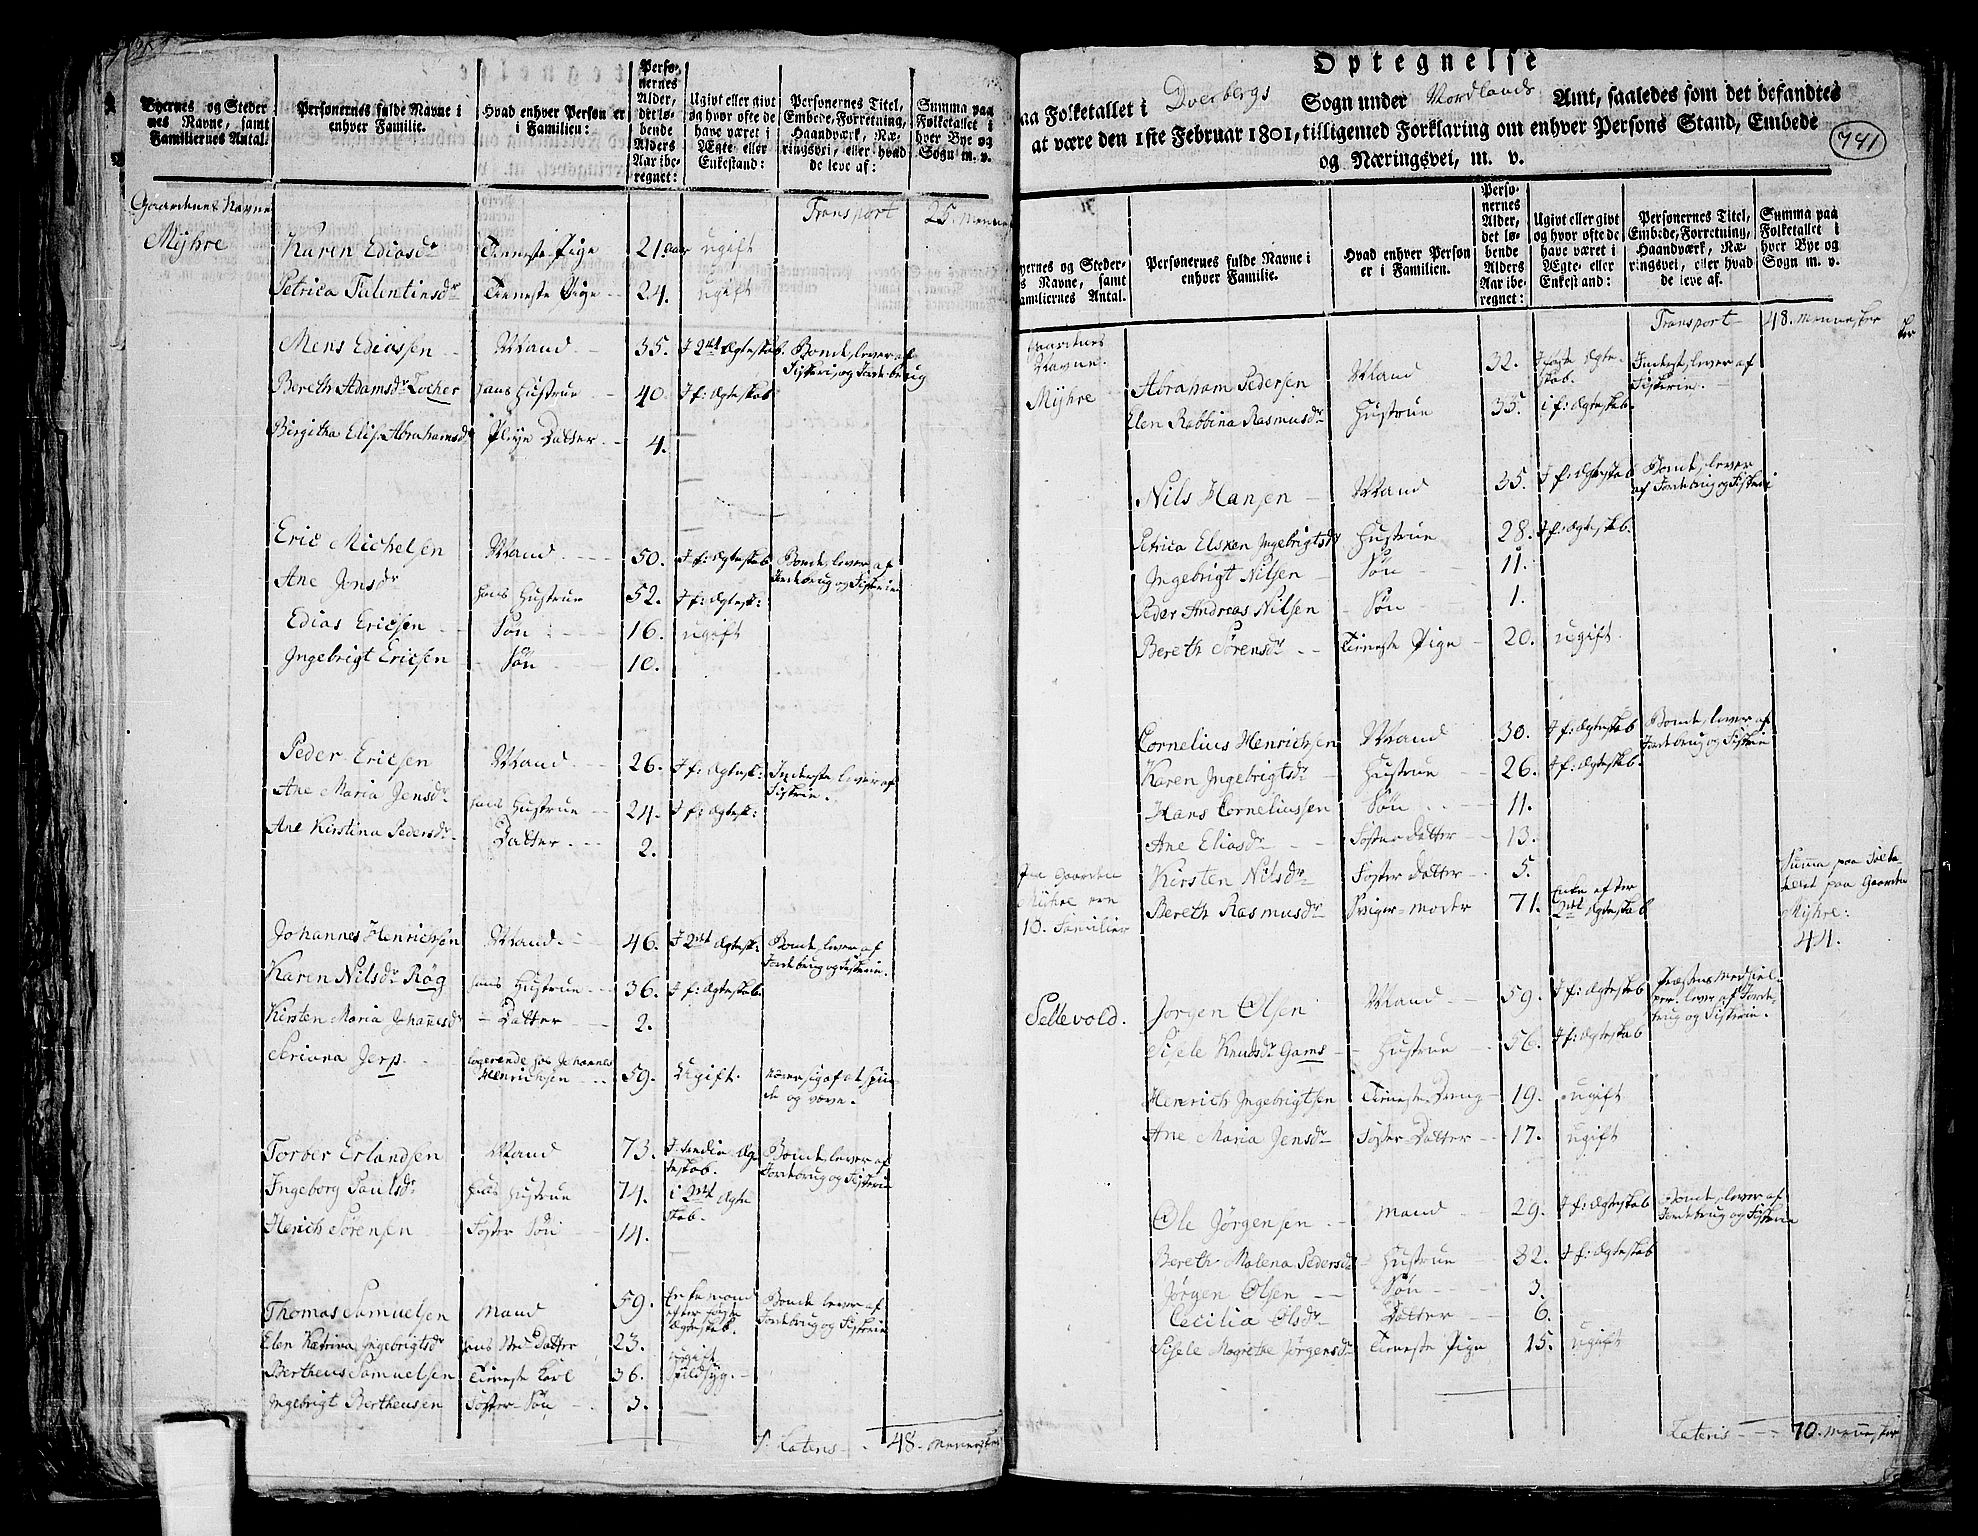 Byernes og Steder-
nes Navne, samt
Familiernes Antal.
Personernes fulde Navne i
enhver Familie.
Hvad enhver Person er
i Familien:
Perso-
nernes
Alder,
det lø-
bende
Alders
Aar ibe-
regnet:
Ugivt eller givt
og hvor ofte de
have været i
Ægte eller
Enkestand:
Personernes Titel,
Embede, Forretning,
Haandværk, Næ-
ringsvei, eller hvad
de leve af:
Summa paa
Folketallet i
hver Bye og
Sogn m. v.
Gaardenes Navne
Transport 25. mennes
Myhre Karen Ediasdr Tieneste Pige 21 aar ugift
Petrica Falentinsdr Tieneste Pige 24. ugift
Mens Ediassen Mand 35. I 2det Ægteskab. Bonde, lever af
Fiskeri, og Jordebrug
Bereth Adamsdr Locher hans Hustrue 40. I f: Ægteskab
Birgitha Elis: Abrahamsd Pleje Datter 4.
Eric Michelsen Mand 50. I f: Ægteskab Bonde, lever af
Jordebrug og Fiskerie
Ane Jonsdr hans Hustrue 52. I f: Ægtesk:
Edias Ericsen Søn 16. ugift
Ingebrigt Ericsen Søn 10.
Peder Ericsen Mand 26. I f: Ægtesk: Inderste lever af
Fiskerie.
Ane Maria Jensdr hans Hustrue 24. I f: Ægtesk:
Ane Kirstina Pedersdr Datter 2.
Johannes Henrichsen Mand 46. I 2det Ægtesk: Bonde, lever af
Jordebrug og Fiskerie.
Karen Nilsdr Røg hans Hustrue 36. I f: Ægteskab.
Kirsten Maria Johanesd Datter 2.
Seriana Jerp logerende hos Johannes
Henrichsen 59. Ugift. nærer sig af at spin-
de og væve.
Torber Erlandsen Mand 73. I tredie Æg
teskab. Bonde, lever af
Jordebrug og Fiskerie
Ingeborg Paulsdr hans Hustrue 74. i 2det Ægte
skab.
Henich Sørensen Foster Søn 14.
Thomas Samuelsen Mand 59. Enkemand
efter første
Ægteskab. Bonde lever af
Jordebrug og Fiskerie
Elen Katrina Ingebrigtsd hans Datter 23.
Bertheus Samuelsen Tieneste Karl 36. ugift
Ingebrigt Bertheusen Foster Søn 3.
Lateris 48. mennesker
Optegnelse
paa Folketallet i Dverbergs Sogn under Nordlands Amt, saaledes som det befandtes
at være den 1ste Februar 1801, tilligemed Forklaring om enhver Persons Stand, Embede
og Næringsvei, m. v.
741
Byernes og Steder-
nes Navne, samt
Familiernes Antal.
Personernes fulde Navne i
enhver Familie.
Hvad enhver Person
er i Familien.
Perso-
nernes
Alder,
det lø-
bende
Alders
Aar ibe-
regnet:
Ugivt eller givt
og hvor ofte de
have været i
Ægte eller
Enkestand:
Personernes Titel,
Embede, Forretning,
Haandværk, Næ-
ringsvei, eller hvad
de leve af.
Summa paa
Folketallet i
hver Bye og
Sogn m. v.
Transport 48. mennesker
Gaardenes
Navne.
Myhre Abraham Pedersen Mand 32. I første Ægte-
skab. Inderst, lever af
Fiskerie.
Elen Rebbina Rasmusdr Hustrue 35. i f: Ægteskab.
Nils Hansen Mand 35. I f: Ægteskab Bonde, lever
af Jordebrug og Fiskeri
Petrica Elsken Ingebrigtsdr Hustrue 28. I f: Ægteskb.
Ingebrigt Nilsen Søn 11.
Peder Andreas Nilsen Søn 1.
Bereth Sørensdr Tieneste Pige 20. ugift
Cornelius Henrichsen Mand 30. I f: Ægteskab Bonde, lever af
Jordebrug og Fiskerie
Karen Ingebrigtsdr Hustrue 26. I f: Ægteskab.
Hans Corneliussen Søn 11.
Ane Eliasdr Foster datter 13.
Kirsten Nilsdr Foster datter 5.
Bereth Rasmusdr Sviger-moder 71. Enke efter
2det Ægteskab
Paa Gaarden
Myhre ere
10. Familier
Summa paa Folke-
tallet paa Gaarden
Myhre:
44.
Sellevold. Jørgen Olsen Mand 59. I f: Ægteskab Præstens Medhiel-
per. lever af Jorde-
brug og Fiskerie.
Sisele Knudsdr Gams Hustrue 56. I f: Ægteskab
Henrich Ingebrigtsen Tieneste Dreng 19. ugift
Ane Maria Jensdr Foster Datter 17. ugift
Ole Jørgensen mand 29. I f: Ægteskab Bonde, lever af
Jordebrug og Fiskerie
Bereth Malena Pedersdr Hustrue 32. I f: Ægteskab
Jørgen Olsen Søn 3.
Cecilia Olsdr Datter 6.
Sisele Magrethe Jørgensdr Tieneste Pige 15. ugift
Lateris 70. mennesker